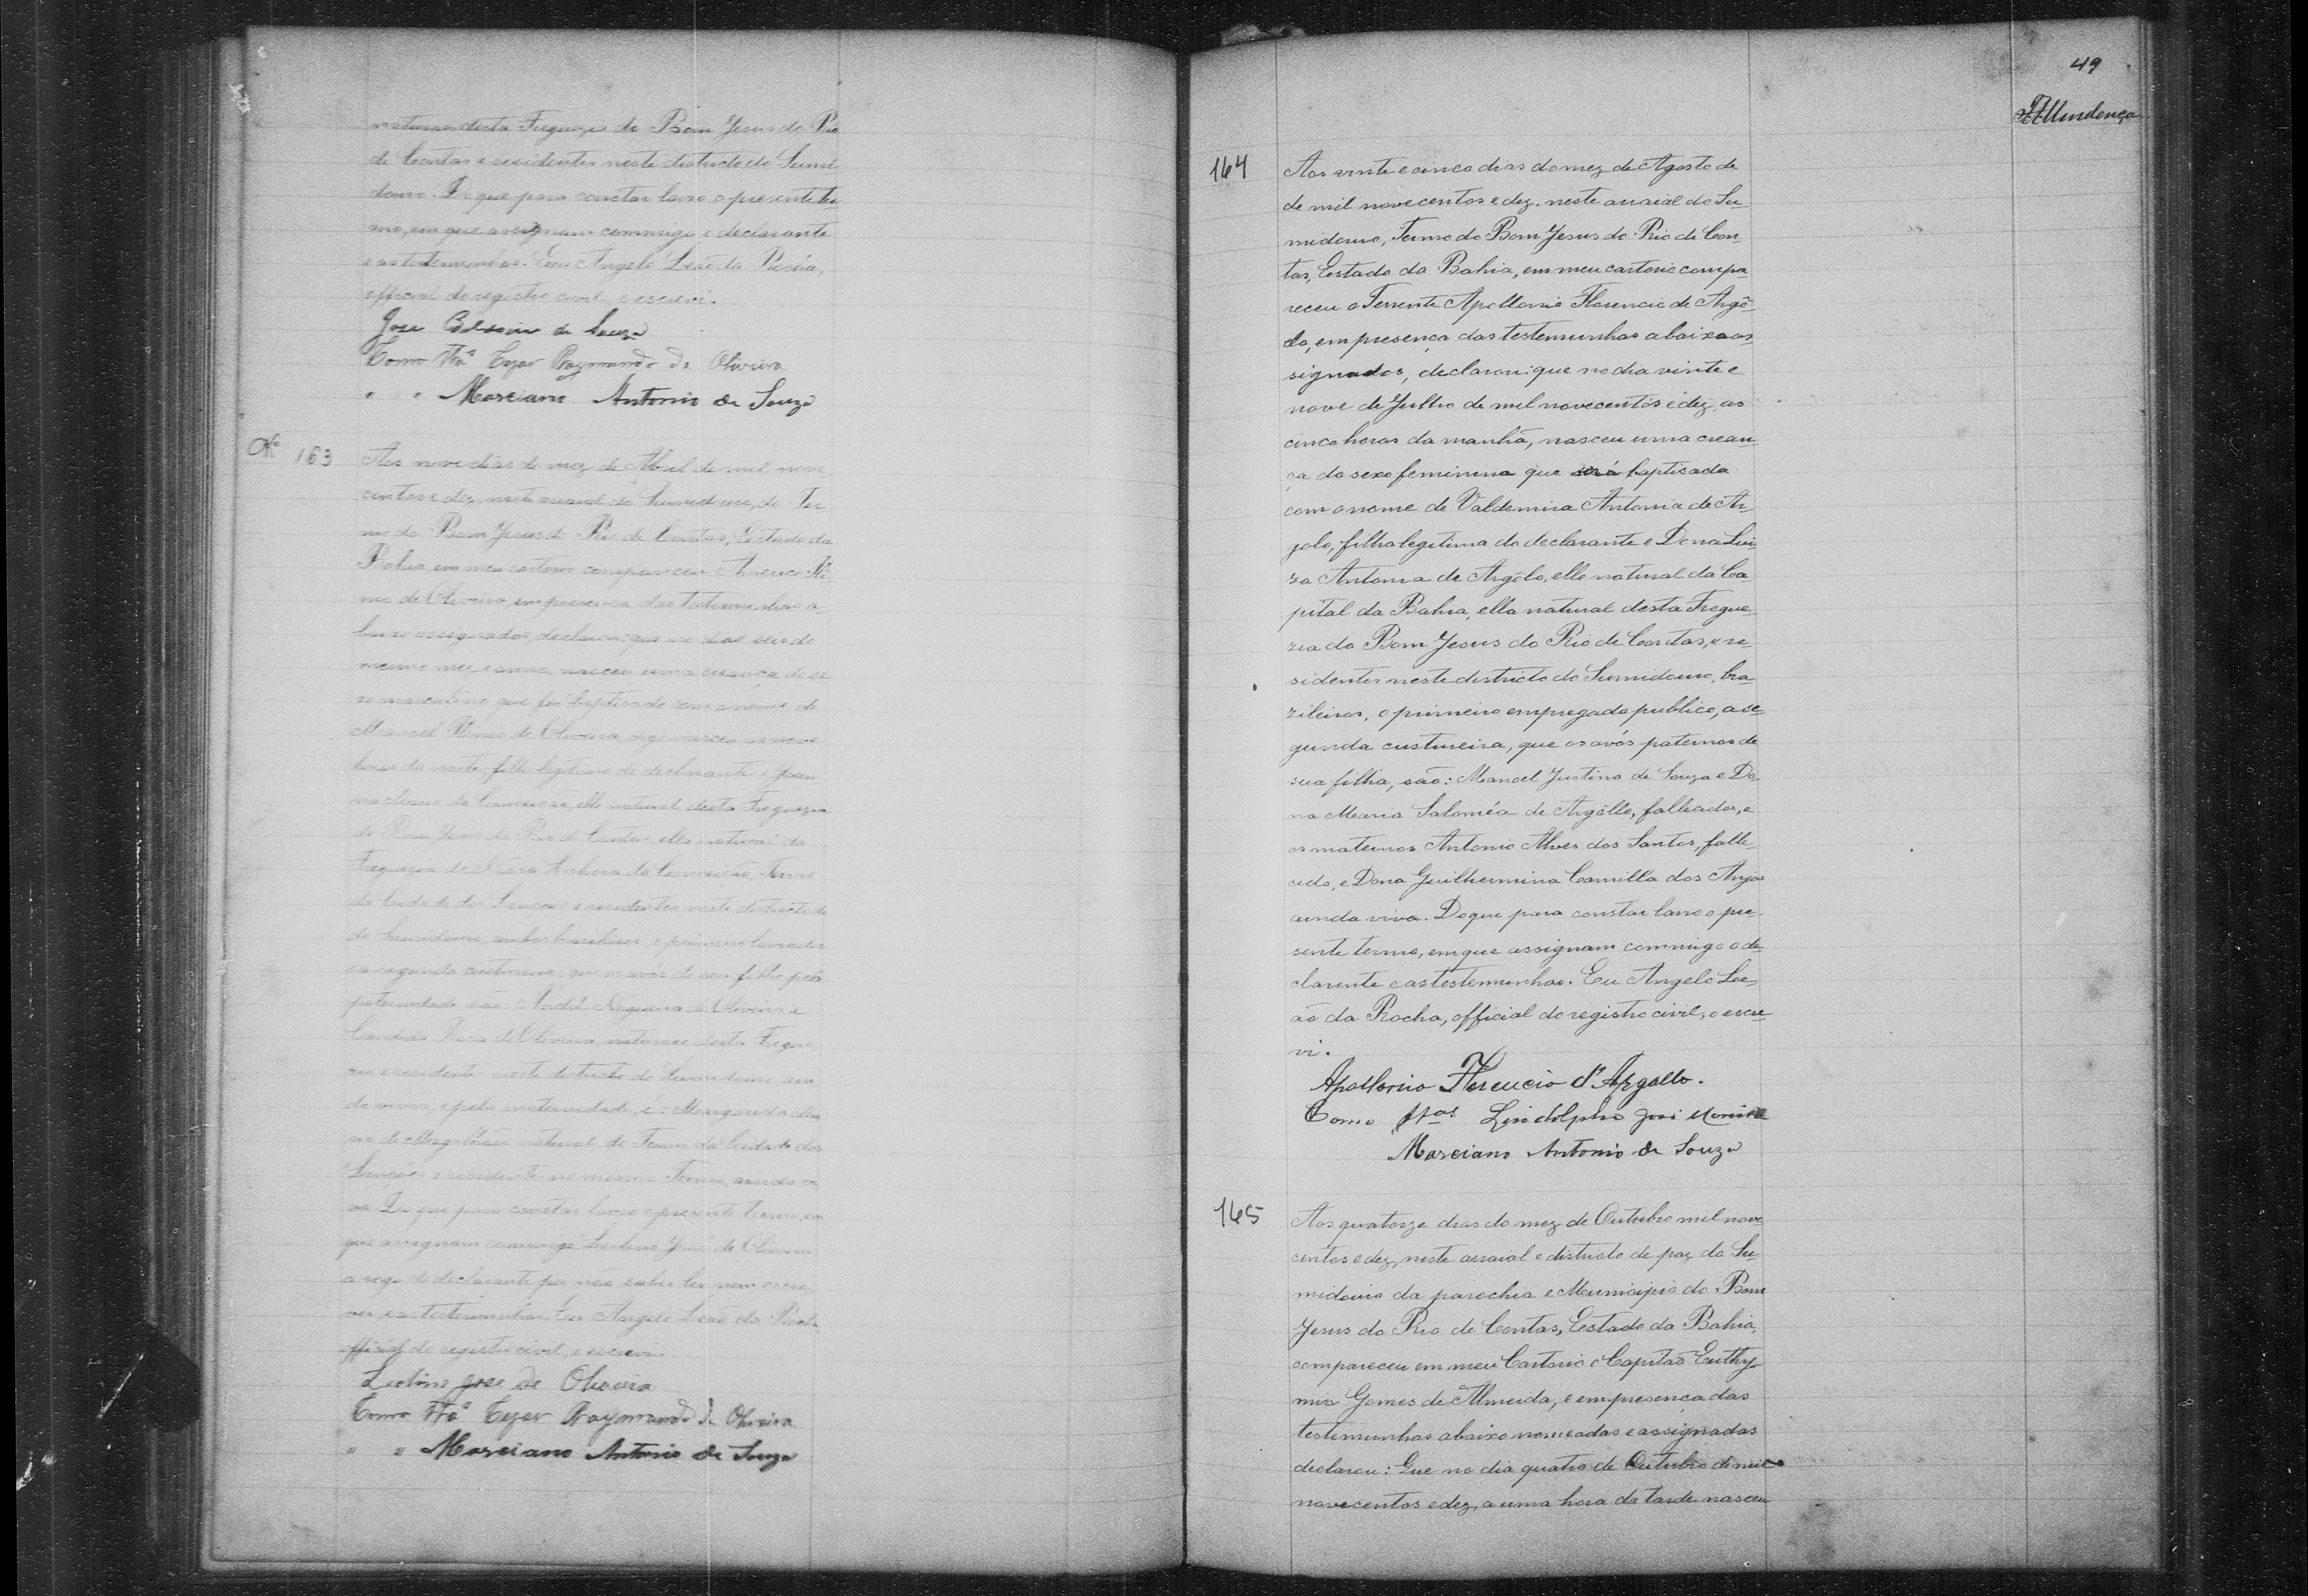 naturaes desta Freguezia do Bom Jesus do Rio
de Contas e residentes neste districto do Sumi
douro. Do que para constar lavro o presente ter
mo, em que assignam commigo o declarante
e as testemunhas. Eu Angelo Leão da Rocha,
official do registro civil, o escrevi.
José de Souza
Como Ttª Cezar Raymundo de Oliveira
" " Marciano Antonio de Souza
Nº 163
Aos nove dias do mez de Abril de mil nove
centos e dez, neste arraial do Sumidouro, do Ter
mo do Bom Jesus do Rio de Contas, Estado da
Bahia, em meu cartorio compareceu Americo
de Oliveira, em presença das testemunhas a
baixo assignadas, declarou: que no dia seis do
mesmo mez e anno, nasceu uma creança do se
xo masculino que foi baptisado com o nome de
Manoel de Oliveira, digo nasceu as nove
horas da noite, filho legitimo do declarante e Joan
na Maria da Conceição, elle natural desta Freguezia
do Bom Jesus do Rio de Contas, ella natural da
Freguezia de Nossa Senhora da Conceição, Termo
da Cidade dos Lençoes e residentes neste districto
do Sumidouro, ambos brasileiros, o primeiro lavrador
e a segunda custureira, que os avós de seu filho pela
paternidade são: André Nogueira de Oliveira e
Candida Rosa de Oliveira, naturaes desta Fregue
zia e residentes neste districto do Sumidouro, ain
da vivos, e pela maternidade, é: Margarida
de Magalhães natural do Termo da Cidade dos
Lençóes e residente no mesmo Termo, ainda vi
va. Do que para constar lavro o presente termo, em
que assignam commigo José de Oliveira
a rogo do declarante por não saber ler nem escre
ver e as testemunhas. Eu Angelo Leão da Rocha
official do registro civil, o escrevi.
José de Oliveira
Como Ttª Cezar Raymundo de Oliveira
" " Marciano Antonio de Souza
49
Mendonça
164
Aos vinte e cinco dias do mez de Agosto de
de mil novecentos e dez. neste arraial do Su
midouro, Termo do Bom Jesus do Rio de Con
tas, Estado da Bahia, em meu cartorio compa
receu o Tenente Apollonio Florencio de Argô
lo, em presença das testemunhas abaixo as
signadas, declarou: que no dia vinte e
nove de Julho de mil novecentos e dez, as
cinco horas da manhã, nasceu uma crean
ça do sexo feminino que será baptisada
com o nome de Valdemira Antonia de Ar
golo, filha legitima do declarante e Dona Lui
za Antonia de Argôlo, elle natural da Ca
pital da Bahia, ella natural desta Fregue
zia do Bom Jesus do Rio de Contas, e re
sidentes neste districto do Sumidouro, bra
zileiros, o primeiro empregado publico, a se
gunda custureira, que os avós paternos de
sua filha, são: Manoel Justino de Souza e Do
na Maria Saloméa de Argôllo, fallecidos, e
os maternos Antonio Alves dos Santos, falle
cido, e Dona Guilhermina Camilla dos Anjos
ainda viva. Do que para constar lavro o pre
sente termo, em que assignam commigo o de
clarente e as testemunhas. Eu Angelo Le
ão da Rocha, official do registro civil, o escre
vi.
Apollonio Florencio d'Argollo.
Como ttas Lindolpho José Moreira
Marciano Antonio de Souza
165
Aos quatorze dias do mez de Outubro mil nove
centos e dez, neste arraial e districto de paz do Su
midouro da parochia e Municipio do Bom
Jesus do Rio de Contas, Estado da Bahia,
compareceu em meu Cartorio o Capitão Euthy
mio Gomes de Almeida, e em presença das
testemunhas abaixo nomeadas e assignadas
declarou: Que no dia quatro de Outubro de mil
novecentos e dez, a uma hora da tarde nasceu